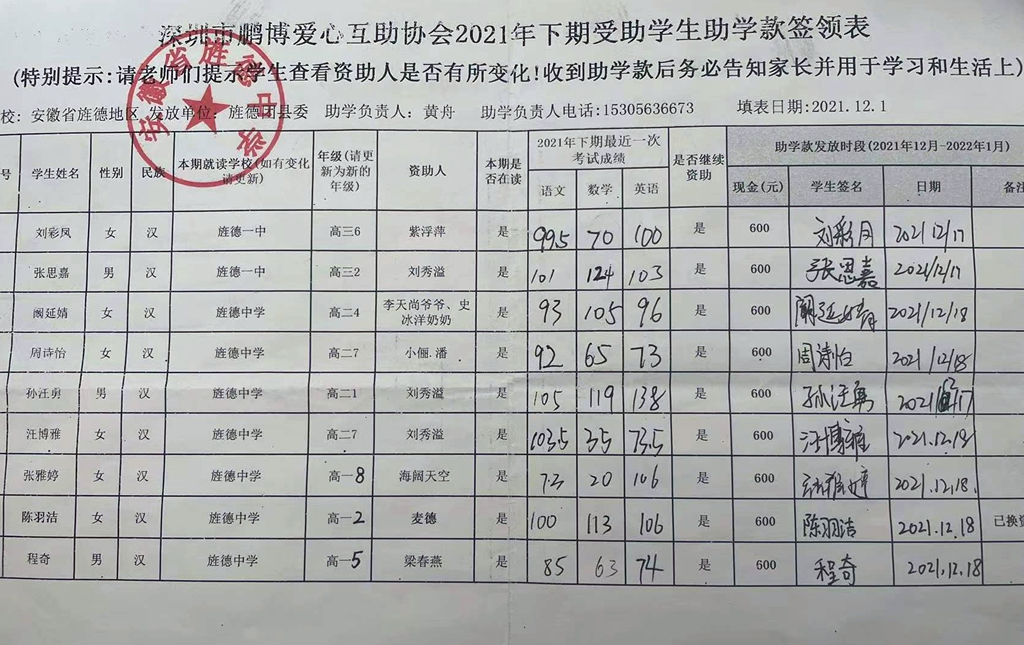 深圳市鹏博爱心互助协会2021年下期受助学生助学款签领表
(特别提示:请老师们提示学生查看资助人是否有所变化!收到助学款后务必告知家长并用于学习和生活上)
校: 安徽省旌德地区 发放单位: 旌德团县委 助学负责人: 黄舟 助学负责人电话:15305636673 填表日期:2021.12.1
安徽省旌德中学
号 学生姓名 性别 民族 本期就读学校(如有变化请更新) 年级(请更新为新的年级) 资助人 本期是否在读 2021年下期最近一次考试成绩 是否继续资助 助学款发放时段(2021年12月-2022年1月)
语文 数学 英语 现金(元) 学生签名 日期 备注
刘彩凤 女 汉 旌德一中 高三6 紫浮萍 是 99.5 70 100 是 600 刘彩月 2021/12/17
张思嘉 男 汉 旌德一中 高三2 刘秀溢 是 101 124 103 是 600 张思嘉 2021/12/17
阚延婧 女 汉 旌德中学 高二4 李天尚爷爷、史冰洋奶奶 是 93 105 96 是 600 阚延婧 2021/12/18
周诗怡 女 汉 旌德中学 高二7 小俪.潘 是 92 65 73 是 600 周诗怡 2021/12/18
孙汪勇 男 汉 旌德中学 高二1 刘秀溢 是 105 119 138 是 600 孙汪勇 2021/17
汪博雅 女 汉 旌德中学 高二7 刘秀溢 是 103.5 35 73.5 是 600 汪博雅 2021.12.18
张雅婷 女 汉 旌德中学 高一8 海阔天空 是 73 20 106 是 600 张雅婷 2021.12.18.
陈羽洁 女 汉 旌德中学 高一2 麦德 是 100 113 106 是 600 陈羽洁 2021.12.18 已换
程奇 男 汉 旌德中学 高一5 梁春燕 是 85 63 74 是 600 程奇 2021.12.18